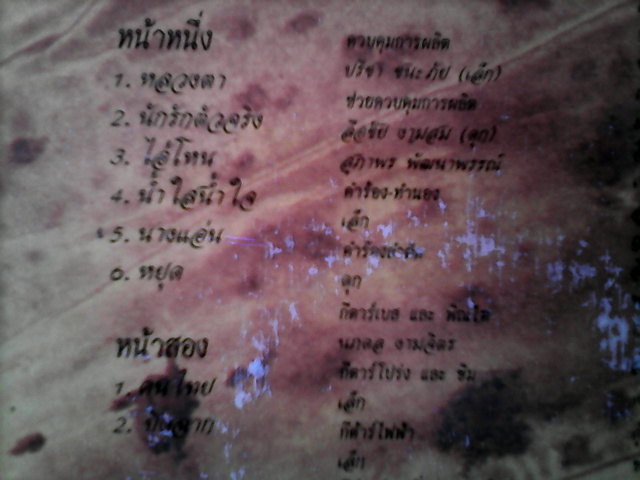 หน้าหนึ่ง
1. หลวงตา
2. นักรักตัวจริง
3. ไอ้โหน
4. น้ำใสน้ำใจ
5. นางแอ่น
6. หยุด
หน้าสอง
1. คนไทย
2.
ควบคุมการผลิต
ปรีชา ชนะภัย (เล็ก)
ช่วยควบคุมการผลิต
ลือชัย งามสม (ดุก)
สุภาพร พัฒนาพรรณ์
คำร้อง-ทำนอง
เล็ก
ดุก
กีตาร์เบส และ
นภดล งามจิตร
กีตาร์โปร่ง และ ขิม
เล็ก
กีต้าร์ไฟฟ้า
เล็ก